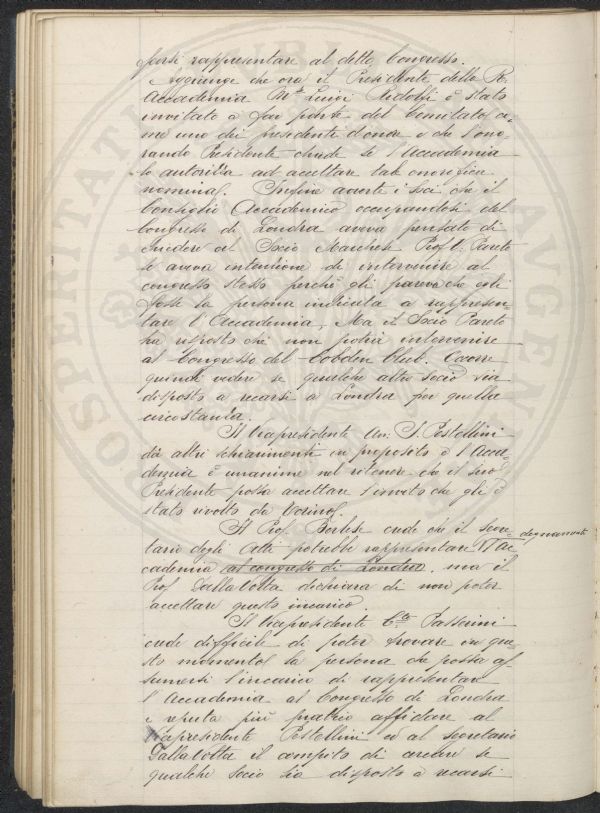 farsi rappresentare al detto Congresso.
Aggiunge che ora il Presidente della R.
Accademia Mse Luigi Ridolfi è stato
invitato a far parte del Comitato co-
me uno dei presidenti d'onore e che l'ono-
rando Presidente chiede se l'Accademia
lo autorizza ad accettare tale onorifica
nomina. Infine avverte i soci che il
Consiglio Accademico occupandosi del
Congresso di Londra aveva pensato di
chiedere al Socio Marchese Prof. V. Pareto
se aveva intenzione di intervenire al
congresso stesso perchè gli pareva che egli
fosse la persona indicata a rappresen-
tare l'Accademia. Ma il Socio Pareto
ha risposto che non potrà intervenire
al Congresso del Cobden Club. Occorre
quindi vedere se qualche altro socio sia
disposto a recarsi a Londra per quella
circostanza.
Il Vicepresidente Av. S. Pestellini
dà altri schiarimenti in proposito e l'Acca-
demia è unanime nel ritenere che il suo
Presidente possa accettare l'invito che gli è
stato rivolto da Torino.
Il Prof. Borlese crede che il segre-
tario degli Atti potrebbe rappresentare degnamente l'Ac-
cademia al congresso di Londra, ma il
Prof. Dalla Volta dichiara di non poter
accettare questo incarico.
Il Vicepresidente Cte Passerini
crede difficile di poter trovare in que-
sto momento la persona che possa as-
sumersi l'incarico di rappresentare
l'Accademia al Congresso di Londra
e reputa più pratico affidare al
Vicepresidente Pestellini ed al segretario
Dalla Volta il compito di cercare se
qualche socio sia disposto a recarsi